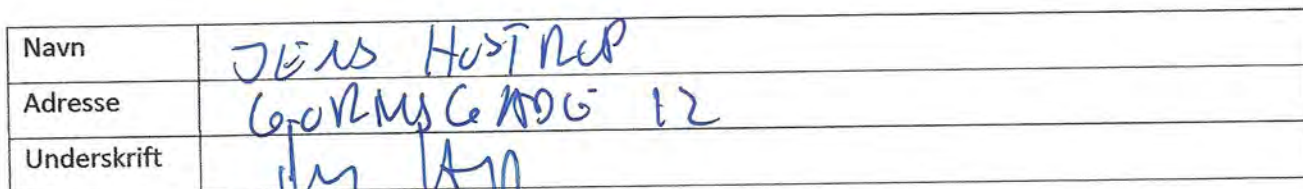 Navn JENS HOSTRUP
Adresse GORMSGADE 12
Underskrift